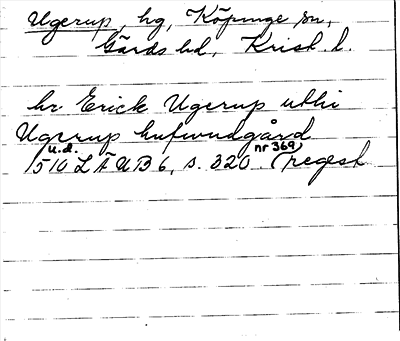 Ugerup, hg, Köpinge sn,
Gärds hd, Krist. l.
hr Erick Ugerup uthi
Ugerup hufwudgård
u.d. nr 369
1510 LÄUB 6, s. 320. (regest